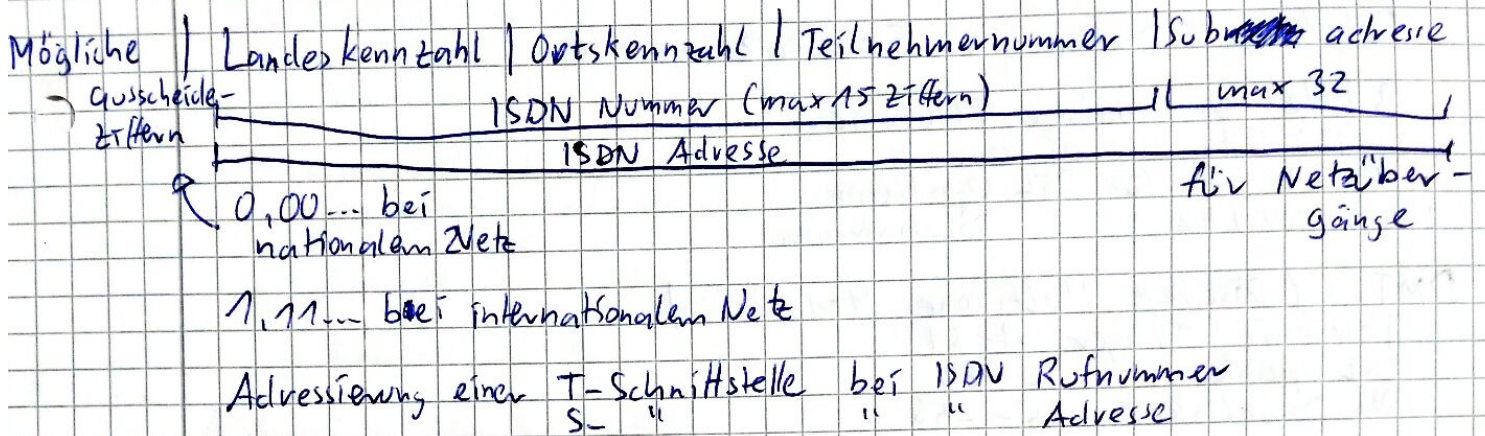 Mögliche | Landeskennzahl | Ortskennzahl | Teilnehmernummer | Subadresse
Ausscheide-
ziffern
ISDN Nummer (max 15 Ziffern) max 32
ISDN Adresse
für Netzüber-
gänge
0,00... bei
nationalem Netz
1,11... bei internationalem Netz
Adressierung einer T-Schnittstelle bei ISDN Rufnummer
S- " " " Adresse